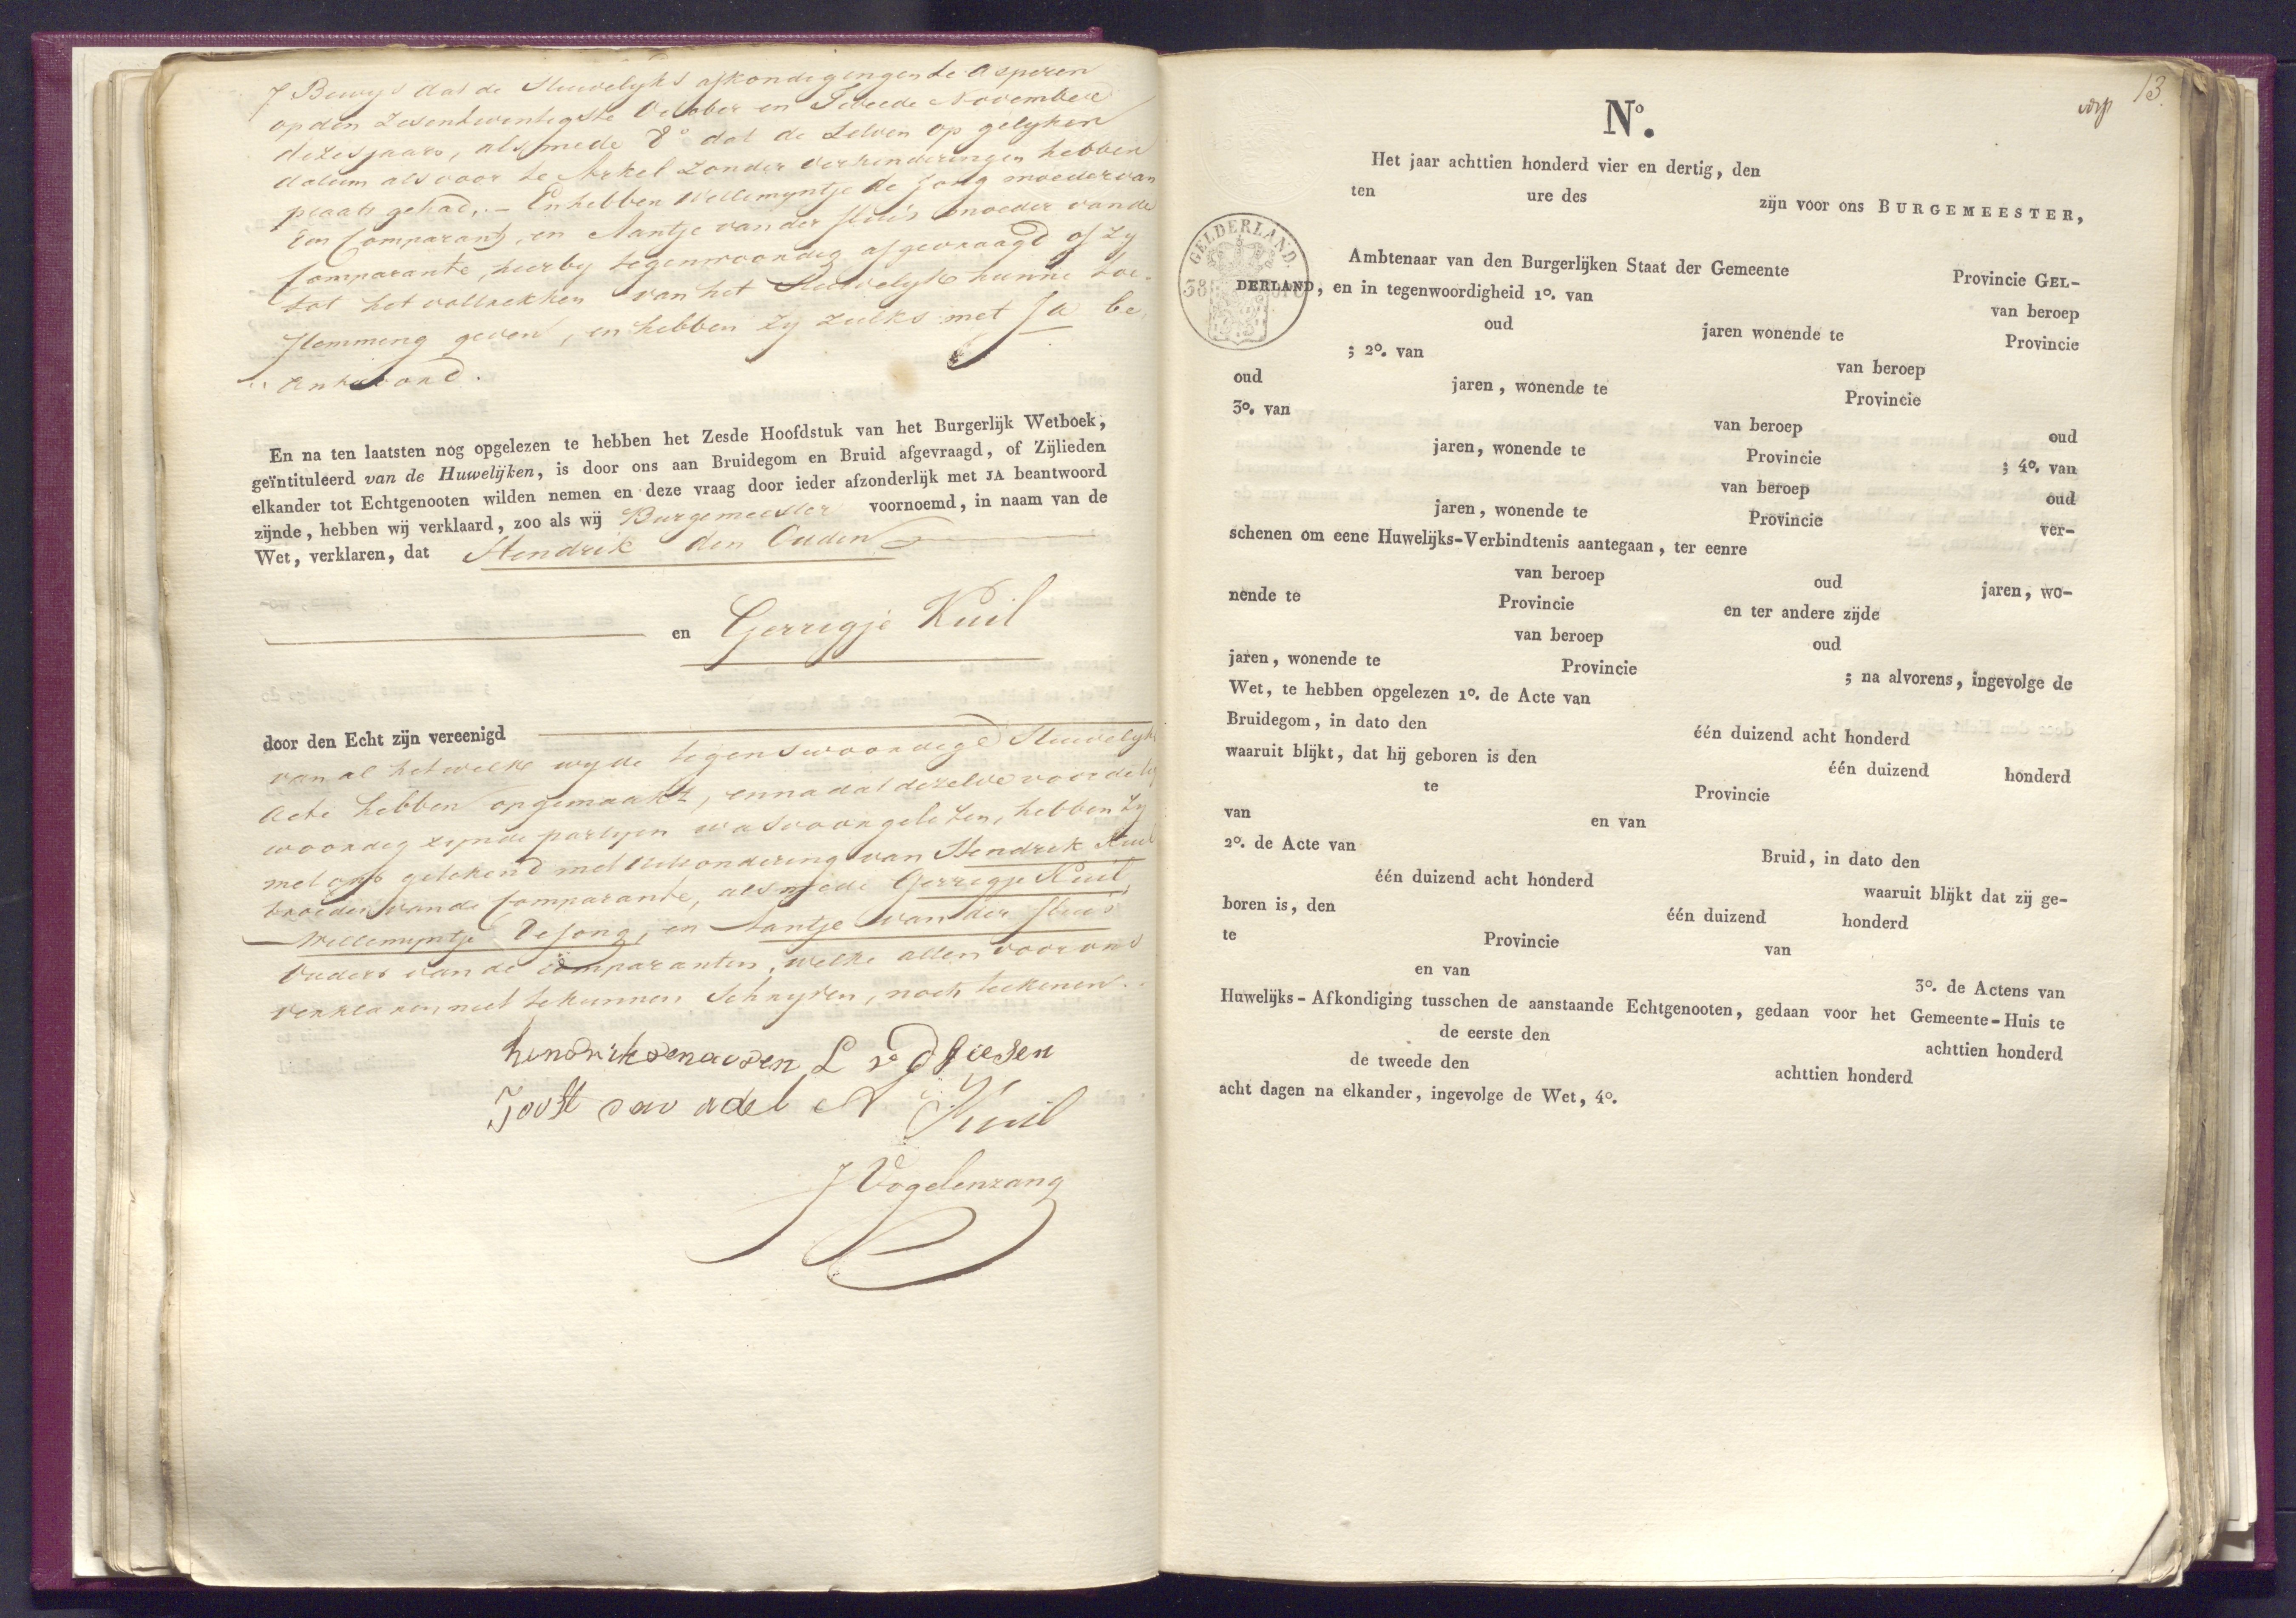 7 Bewys dat de Huwelyks afkondigingen te Asperen
op den Zesentwintigste October en Tweede November
dezes jaars, alsmede 8° dat de Zelven op gelyken
datum als voor te Arkel zonder verhinderingen hebben
plaats gehad,.— En hebben Willemyntje de Jong moeder van
den Comparant, en Aantje van der Sluis moeder van de
Comparante, hierby tegenwoordig afgevraagd of zy
tot het voltrekken van het Huwelyk hunne toe-
stemming geven, en hebben zy zulks met Ja be
antwoord.
En na ten laatsten nog opgelezen te hebben het Zesde Hoofdstuk van het Burgerlijk Wetboek,
geïntituleerd van de Huwelijken, is door ons aan Bruidegom en Bruid afgevraagd, of Zijlieden
elkander tot Echtgenooten wilden nemen en deze vraag door ieder afzonderlijk met JA beantwoord
zijnde, hebben wij verklaard, zoo als wij Burgemeester voornoemd, in naam van de
Wet, verklaren, dat Hendrik den Ouden
en Gerrigje Kuil
door den Echt zijn vereenigd
van al het welke wy de tegenswoordige Huwelyks
Acte hebben opgemaakt, en na dat dezelve voor de te
woordig zynde partyen was voorgelezen, hebben zy
met ons getekend met uitzondering van Hendrik Kuil
broeder van de Comparante, alsmede Gerrigje Kuil,
Willemyntje de Jong, en Aantje van der Sluis
Ouders van de Comparanten, welke allen voor ons
verklaren niet te kunnen Schryven, noch teekenen.
hendrik den ouden L v d
Joost van adel A Kuil
J Vogelenzang
13.
N°.
Het jaar achttien honderd vier en dertig, den
ten ure des zijn voor ons BURGEMEESTER,
GELDERLAND.
38
Ambtenaar van den Burgerlijken Staat der Gemeente Provincie GEL-
DERLAND, en in tegenwoordigheid 1°. van van beroep
oud jaren wonende te Provincie
; 2°. van van beroep
oud jaren, wonende te Provincie
3°. van van beroep oud
jaren, wonende te Provincie ; 4°. van
van beroep oud
jaren, wonende te Provincie ver-
schenen om eene Huwelijks-Verbindtenis aantegaan, ter eenre
van beroep oud jaren, wo-
nende te Provincie en ter andere zijde
van beroep oud
jaren, wonende te Provincie ; na alvorens, ingevolge de
Wet, te hebben opgelezen 1°. de Acte van
Bruidegom, in dato den één duizend acht honderd
waaruit blijkt, dat hij geboren is den één duizend honderd
te Provincie
van en van
2°. de Acte van Bruid, in dato den
één duizend acht honderd waaruit blijkt dat zij ge-
boren is, den één duizend honderd
te Provincie van
en van 3°. de Actens van
Huwelijks-Afkondiging tusschen de aanstaande Echtgenooten, gedaan voor het Gemeente-Huis te
de eerste den achttien honderd
de tweede den achttien honderd
acht dagen na elkander, ingevolge de Wet, 4°.